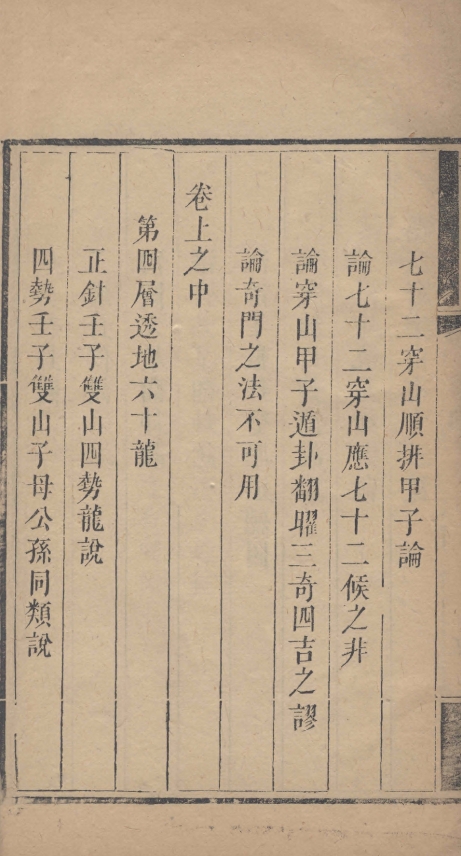 七十二穿山順排甲子論
論七十二穿山應七十二候之非
論穿山甲子遁卦翻曜三奇四吉之謬
論奇門之法不可用
卷上之中
第四層透地六十龍
正針壬子雙山四勢龍說
四勢壬子雙山子母公孫同類說